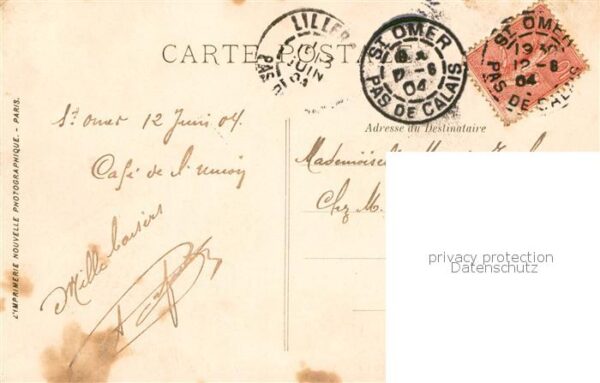 CARTE POSTALE
LILLERS
JUIN
04
PAS DE
ST OMER
12-6
04
PAS DE CALAIS
ST OMER
12-6
04
PAS DE CALAIS
Adresse du Destinataire
St Omer 12 Juin 04.
Café de l'union
Mille baisers
Mademoiselle
Chez M.
privacy protection
Datenschutz
L'IMPRIMERIE NOUVELLE PHOTOGRAPHIQUE. - PARIS.